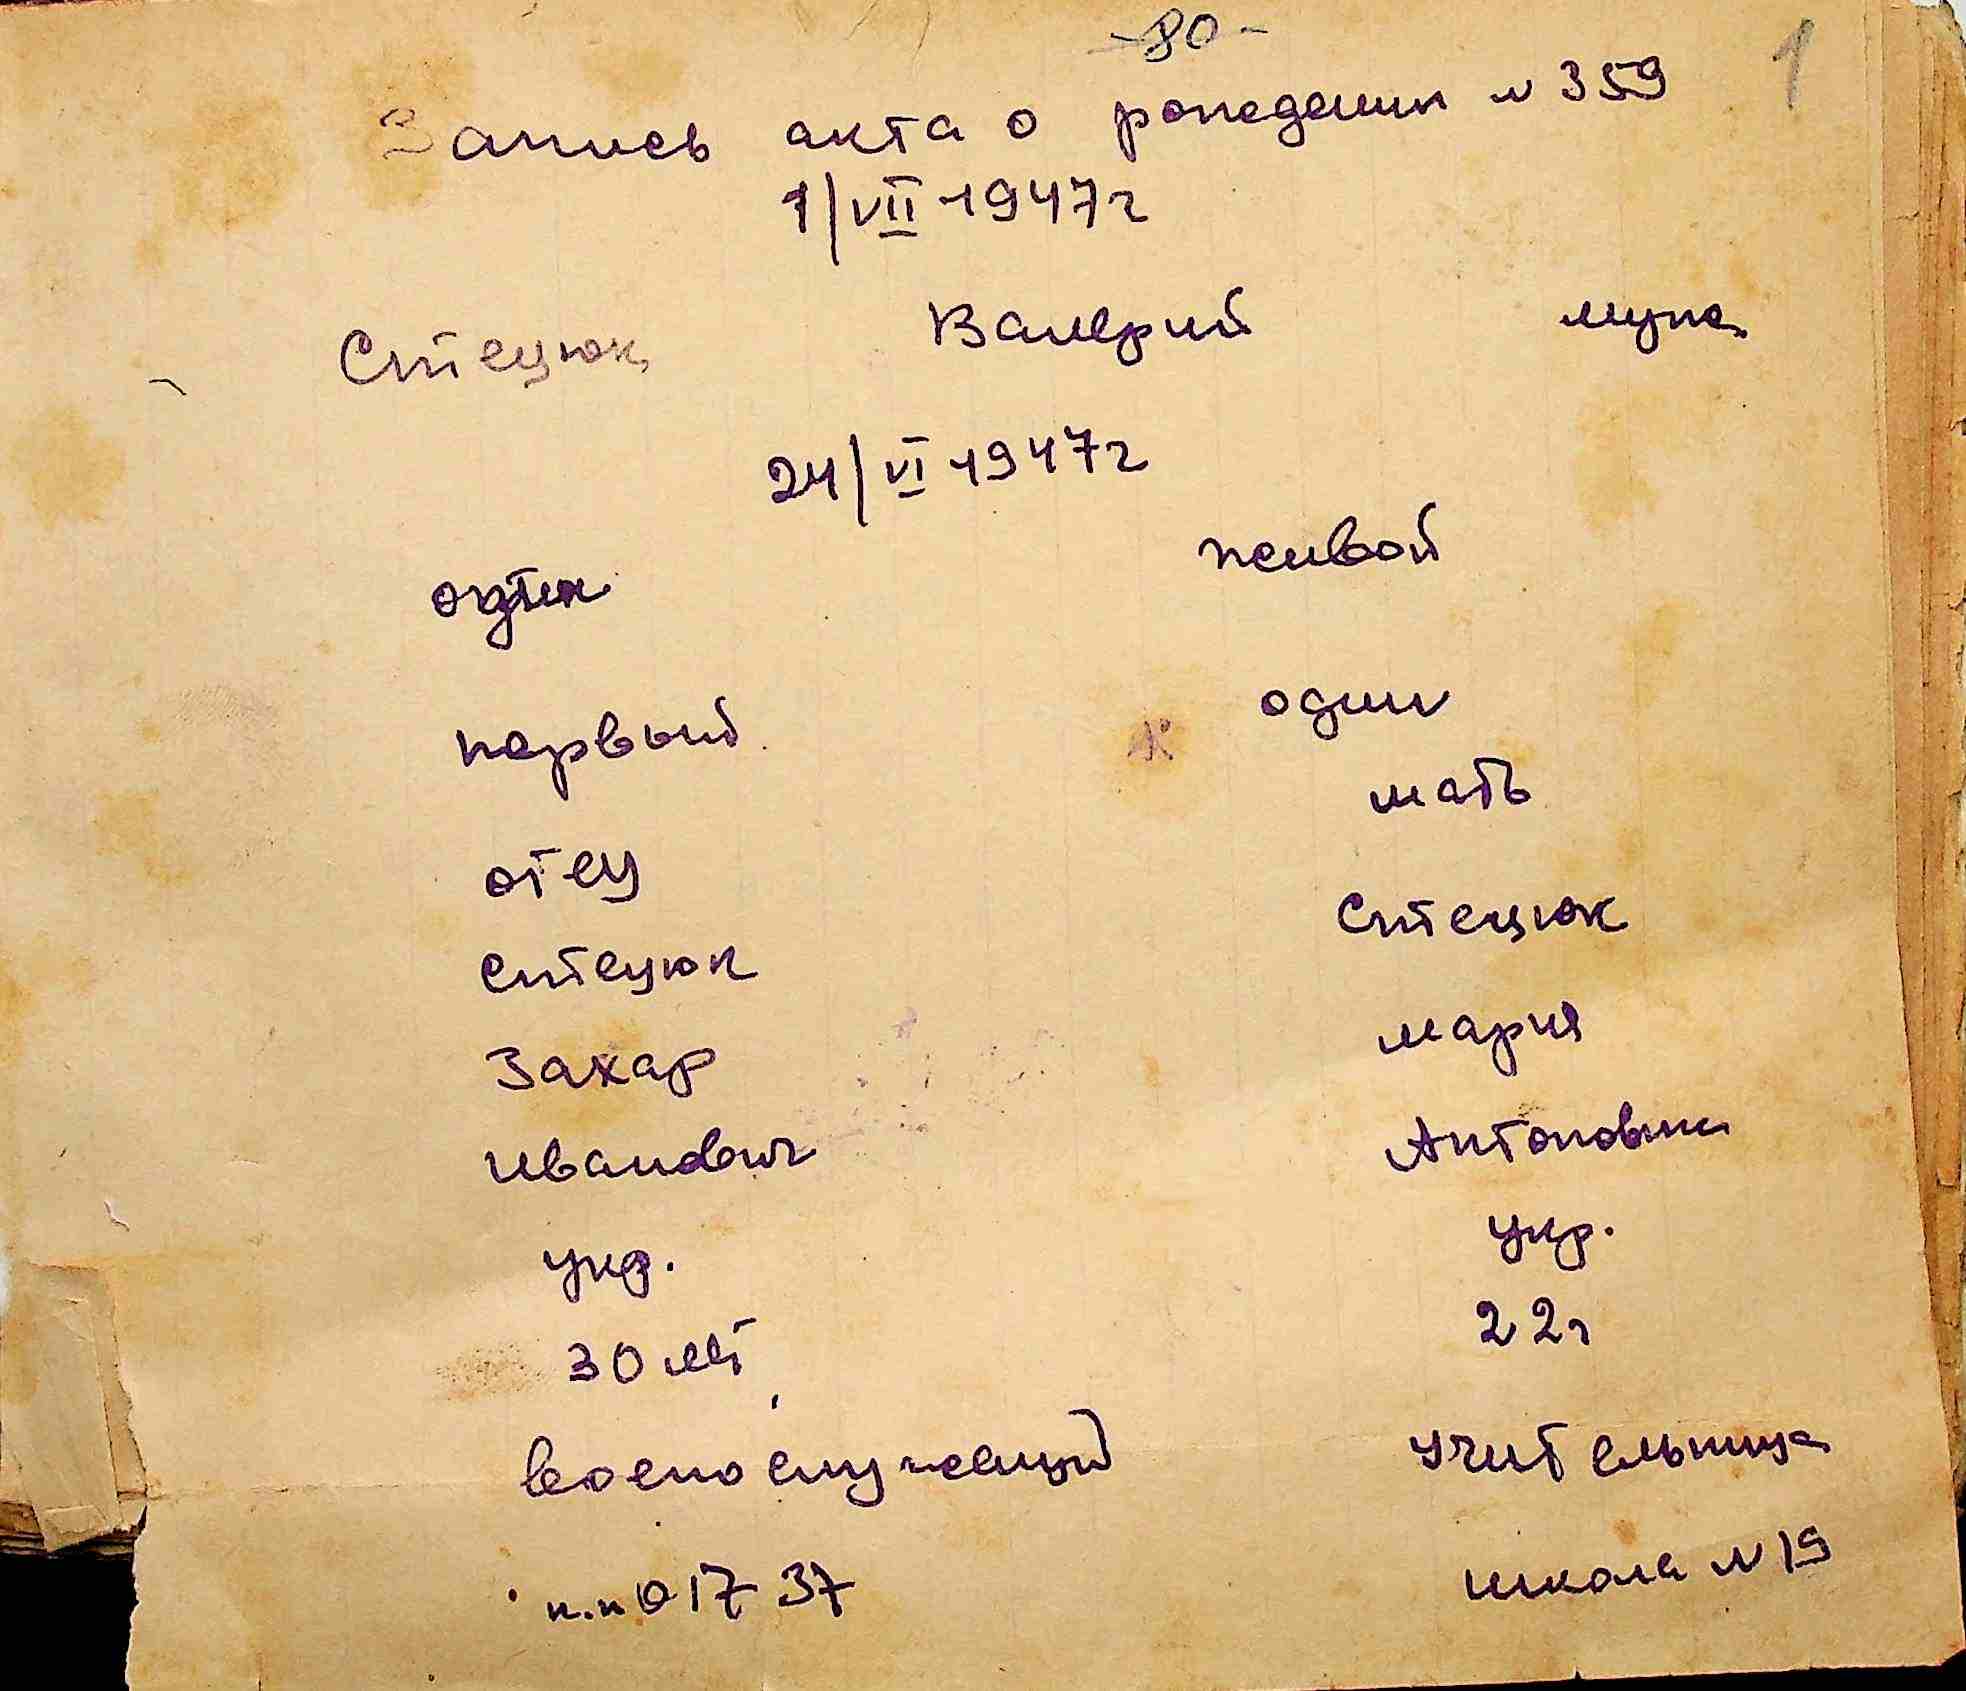 -80- 1
Запись акта о рождении N 359
1/VII 1947г
Стецюк Валерий муж.
24/VI 1947г
один живой
первый один
отец мать
Стецюк Стецюк
Захар Мария
Иванович Антоновна
укр. укр.
30 лет 22г
военослужащий учительница
п.п 01737 школа N 19